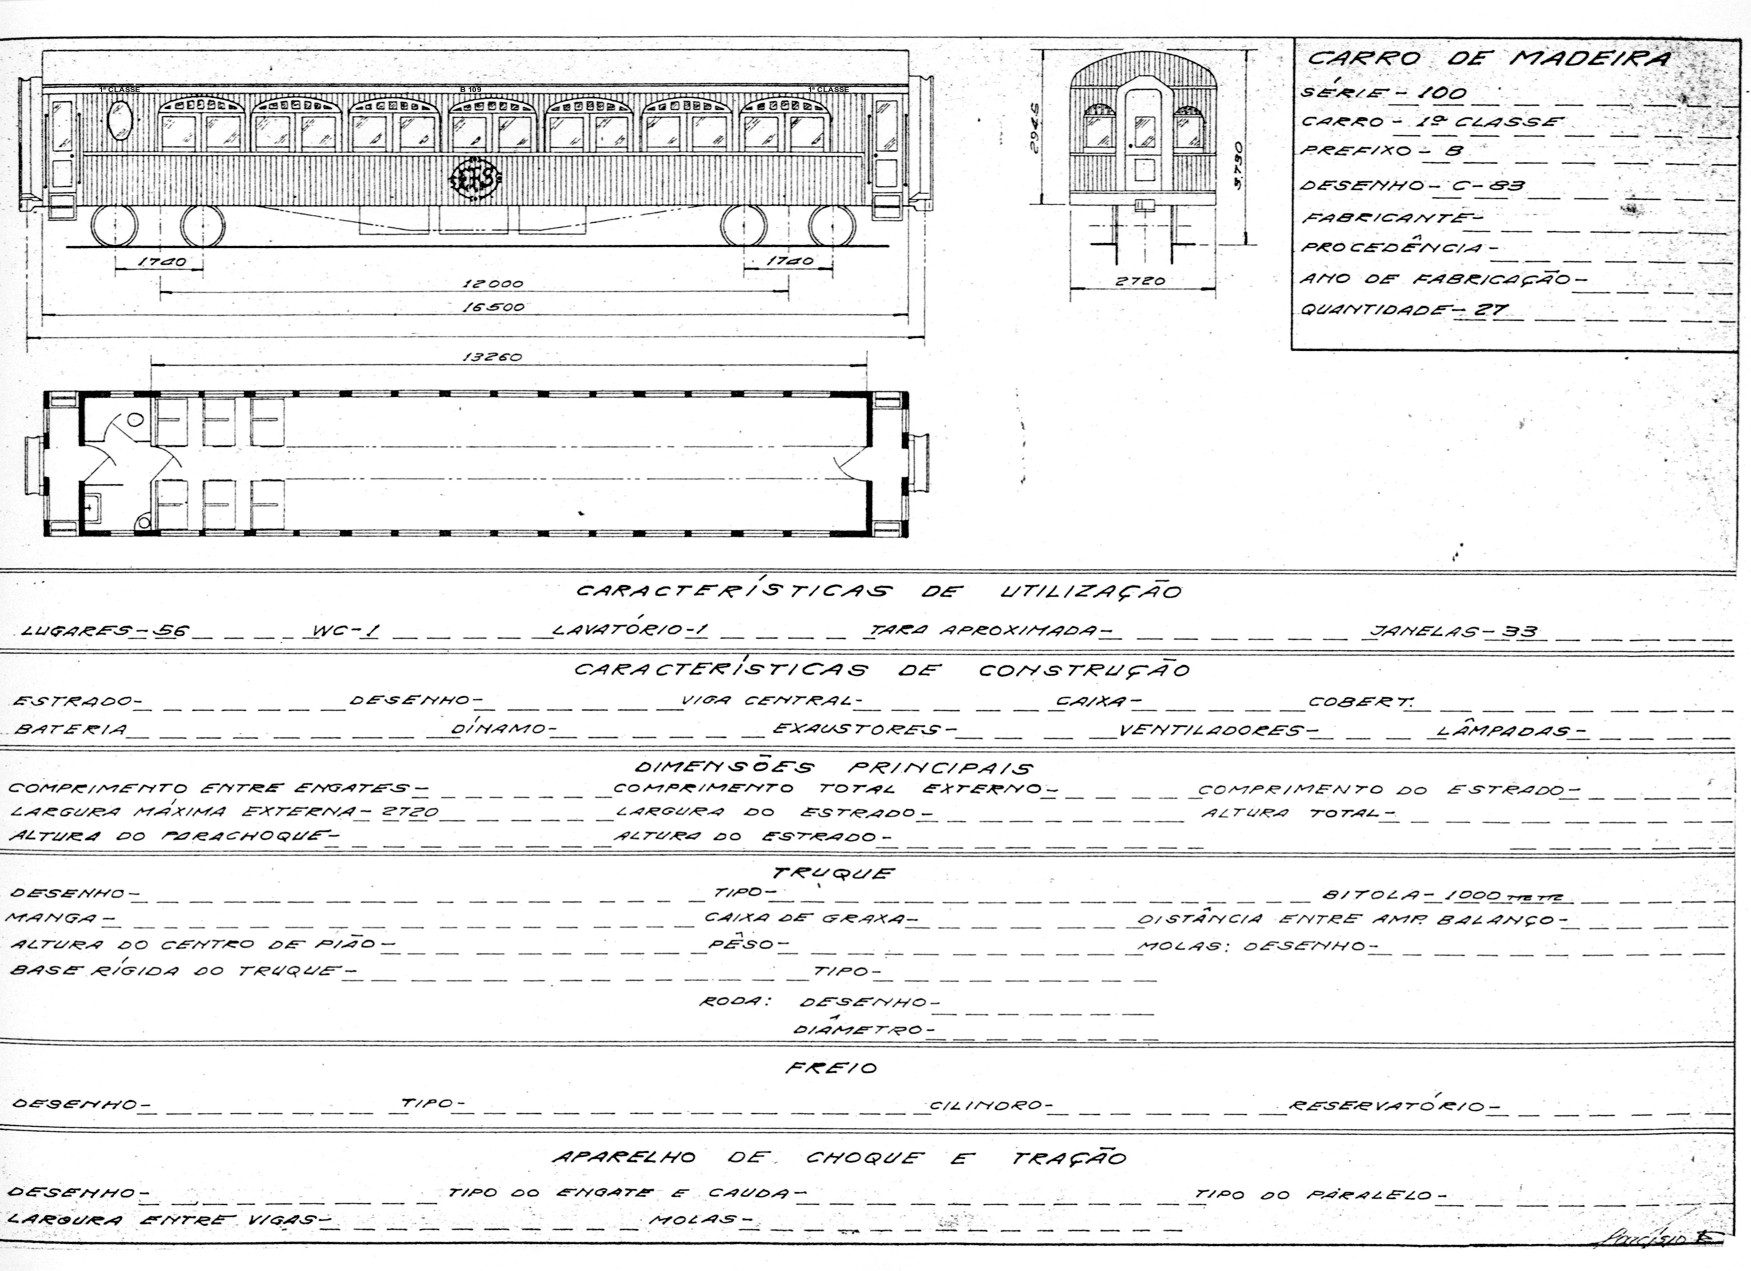 1ª CLASSE B 109 1ª CLASSE
EFS
1740 1740
12000
16500
13260
2945
3.790
2720
CARRO DE MADEIRA
SÉRIE - 100
CARRO - 1ª CLASSE
PREFIXO - B
DESENHO - C-83
FABRICANTE-
PROCEDÊNCIA-
ANO DE FABRICAÇÃO-
QUANTIDADE- 27
CARACTERÍSTICAS DE UTILIZAÇÃO
LUGARES-56 WC-1 LAVATÓRIO-1 TARA APROXIMADA- JANELAS-33
CARACTERÍSTICAS DE CONSTRUÇÃO
ESTRADO- DESENHO- VIGA CENTRAL- CAIXA- COBERT.
BATERIA DÍNAMO- EXAUSTORES- VENTILADORES- LÂMPADAS-
DIMENSÕES PRINCIPAIS
COMPRIMENTO ENTRE ENGATES- COMPRIMENTO TOTAL EXTERNO- COMPRIMENTO DO ESTRADO-
LARGURA MÁXIMA EXTERNA-2720 LARGURA DO ESTRADO- ALTURA TOTAL-
ALTURA DO PARACHOQUE- ALTURA DO ESTRADO-
TRUQUE
DESENHO- TIPO- BITOLA-1000 mm
MANGA- CAIXA DE GRAXA- DISTÂNCIA ENTRE AMP. BALANÇO-
ALTURA DO CENTRO DE PIÃO- PÊSO- MOLAS: DESENHO-
BASE RÍGIDA DO TRUQUE- TIPO-
RODA: DESENHO-
DIÂMETRO-
FREIO
DESENHO- TIPO- CILINDRO- RESERVATÓRIO-
APARELHO DE CHOQUE E TRAÇÃO
DESENHO- TIPO DO ENGATE E CAUDA- TIPO DO PARALELO-
LARGURA ENTRE VIGAS- MOLAS-